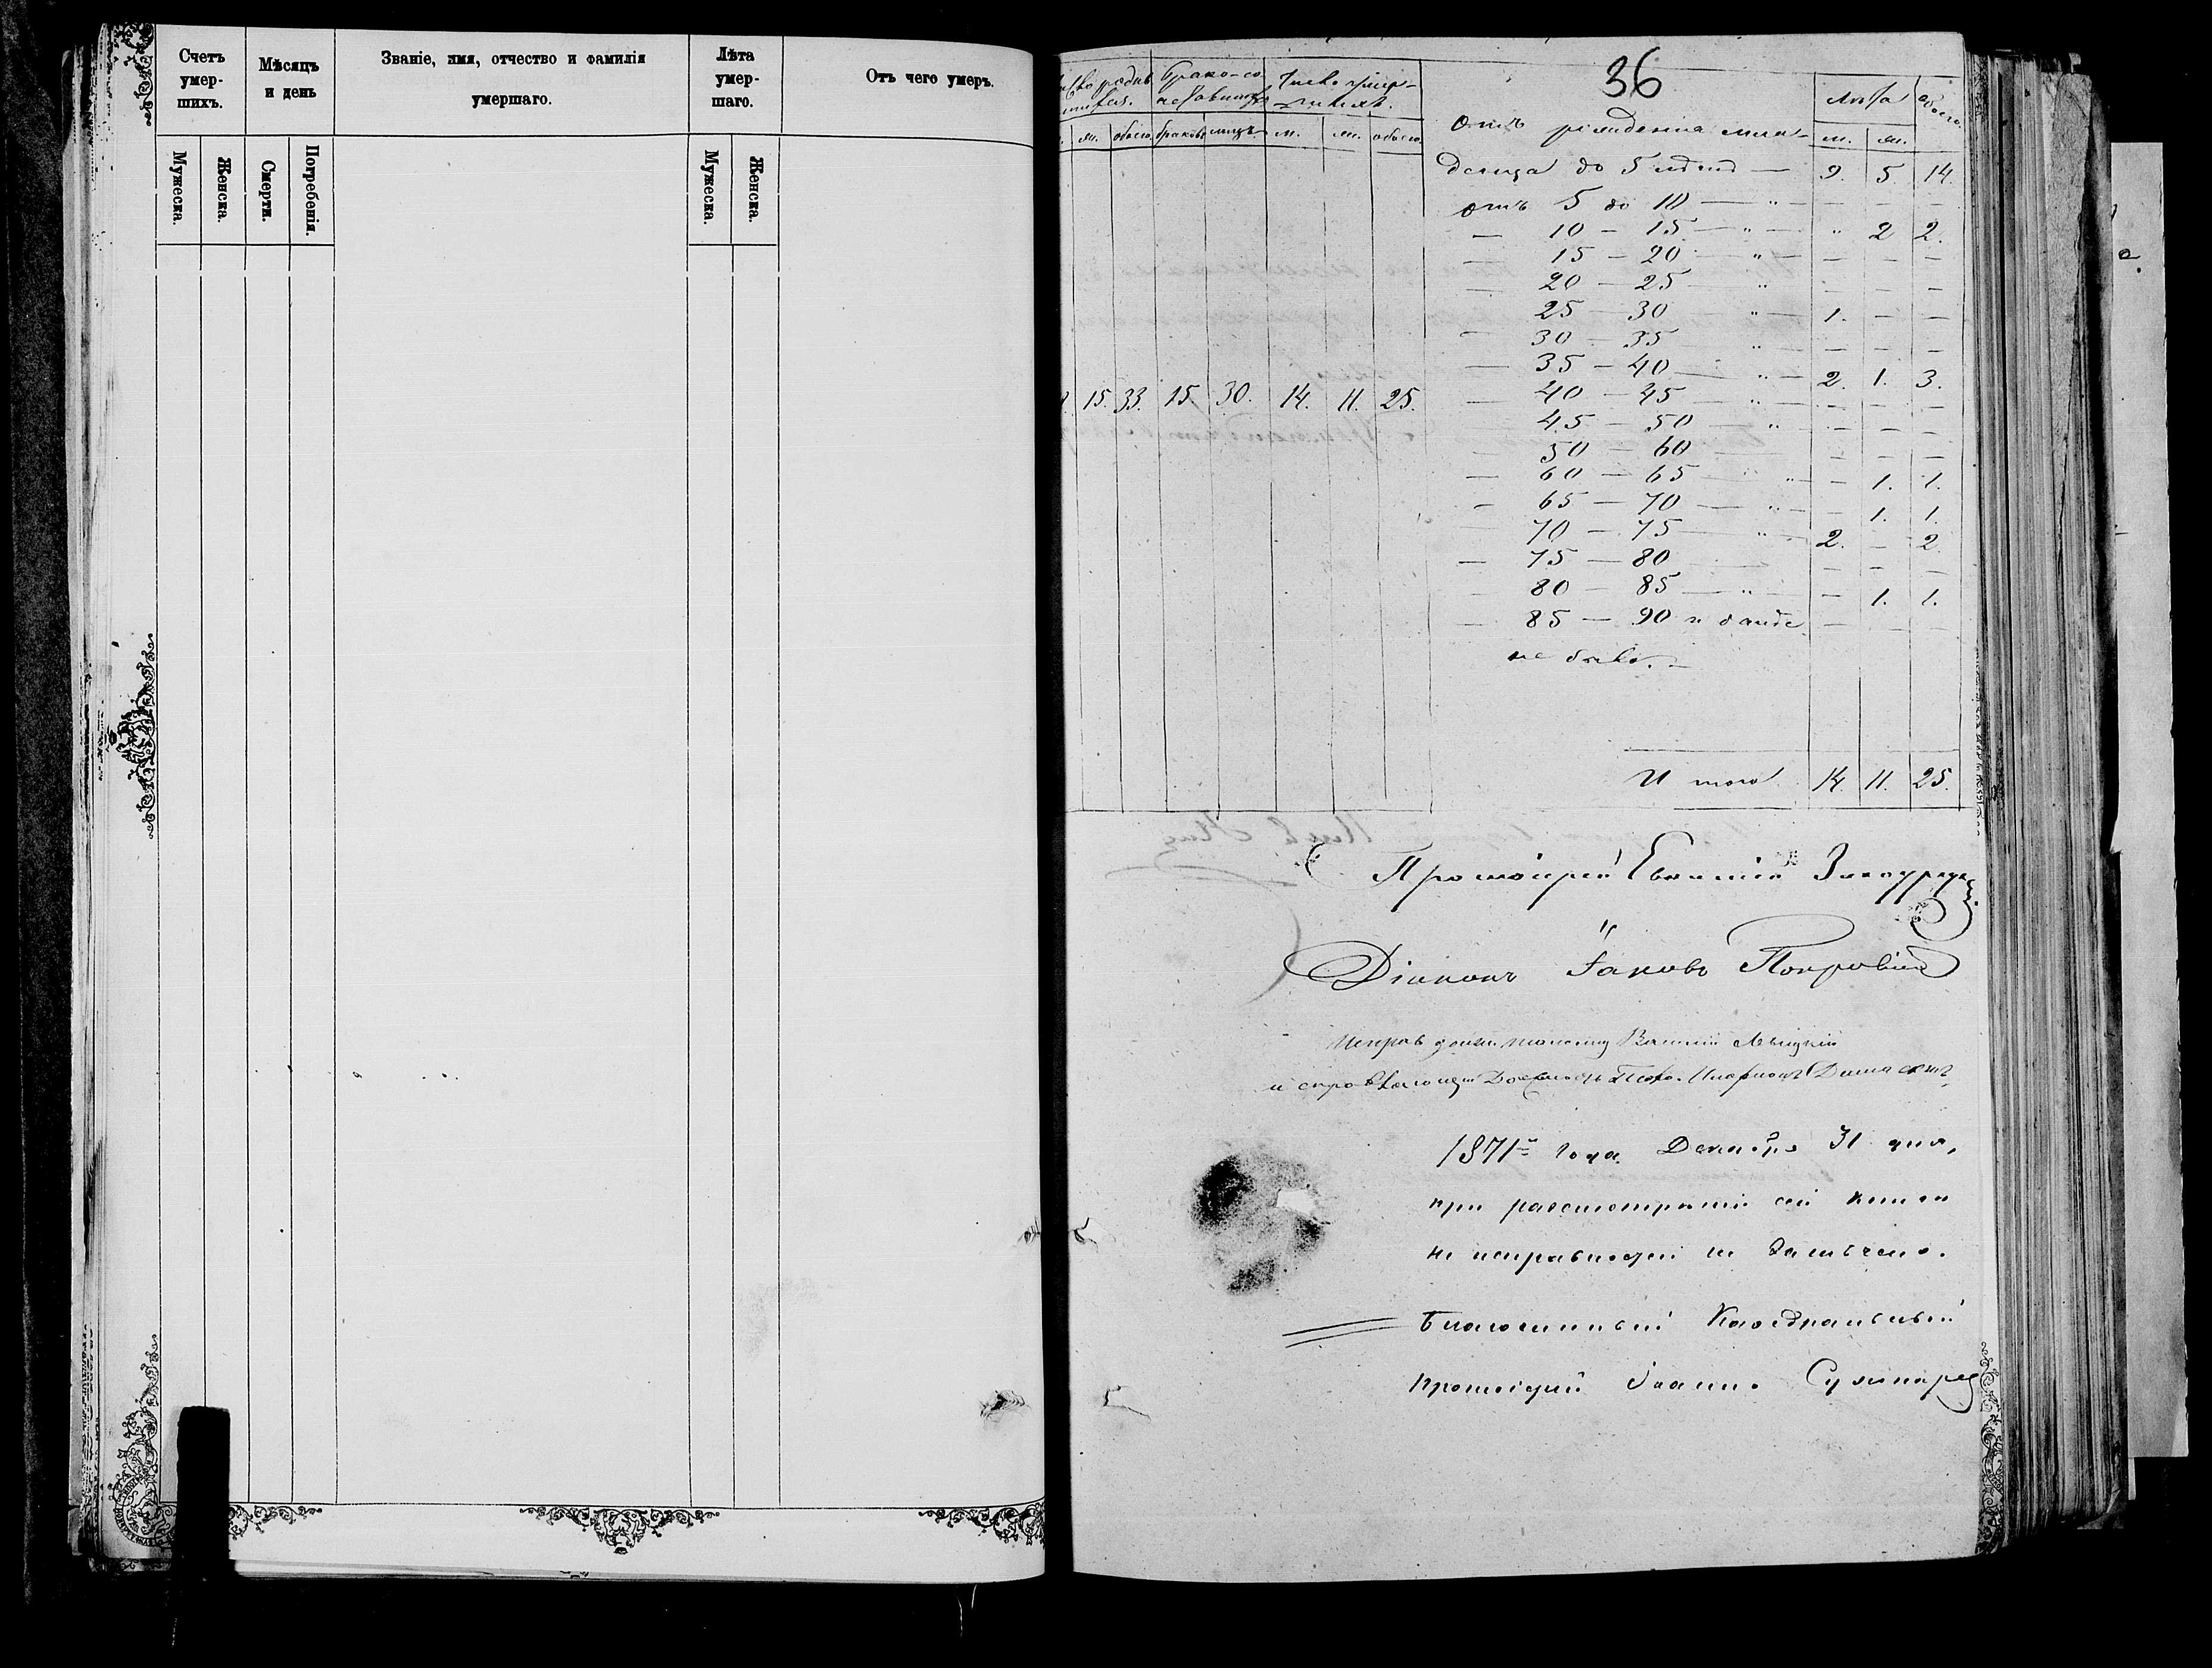 Счетъ умер- шихъ.
Мѣсяцъ и день
Званіе, имя, отчество и фамилія умершаго.
Лѣта умер- шаго.
Отъ чего умеръ.
Мужеска.
Женска.
Смерти.
Погребенія.
Мужеска.
Женска.
36
Брако-со
м. обоего браковъ лицъ м. ж. обоего
Лѣта обоего
м. ж.
отъ рожденія мла-
денца до 5 — 9. 5. 14.
отъ 5 до 10 — „ — — — —
— 10 — 15 — „ — „ 2 2.
— 15 — 20 — „ — — — —
— 20 — 25 — „ — — —
25 — 30 „ — 1. — —
— 30 — 35 „ — — — —
— 35 — 40 — „ — 2. 1. 3.
15. 33. 15. 30. 14. 11. 25.
— 40 — 45 — „ — — — —
— 45 — 50 — „ — — —
— 50 — 60 — — — —
— 60 — 65 — „ — — 1. 1.
— 65 — 70 — „ — — 1. 1.
70 — 75 — „ — 2. — 2
— 75 — 80 — — — —
80 — 85 — „ — — 1. 1.
— 85 — 90 и далѣе — — —
не было. —
Итого 14. 11. 25.
Протоіерей Евѳимій
Діаконъ Іаковъ Покровскій
Исправ долж. Василій Левицкій
и справляющ Должность
1871го года Декабря 31 дня,
при разсмотрѣніи сей книги
неисправностей не замѣчено.
Благочинный Каѳедральный
протоіерей Іоаннъ